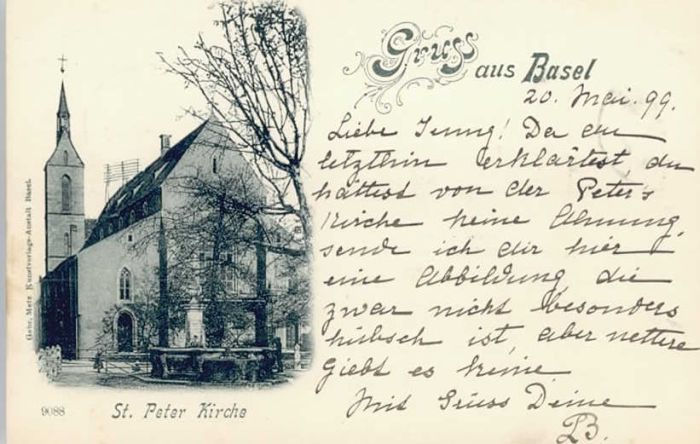 Gruss aus Basel
20. Mai. 99.
Liebe Jenny! Da du
letzthin erklärtest du
hättest von der Peters
Kirche keine Ahnung,
sende ich dir hier
eine Abbildung, die
zwar nicht besonders
hübsch ist, aber nettere
giebt es keine.
Mit Gruss Deine
Gebr. Metz Kunstverlags-Anstalt Basel.
9088 St. Peter Kirche